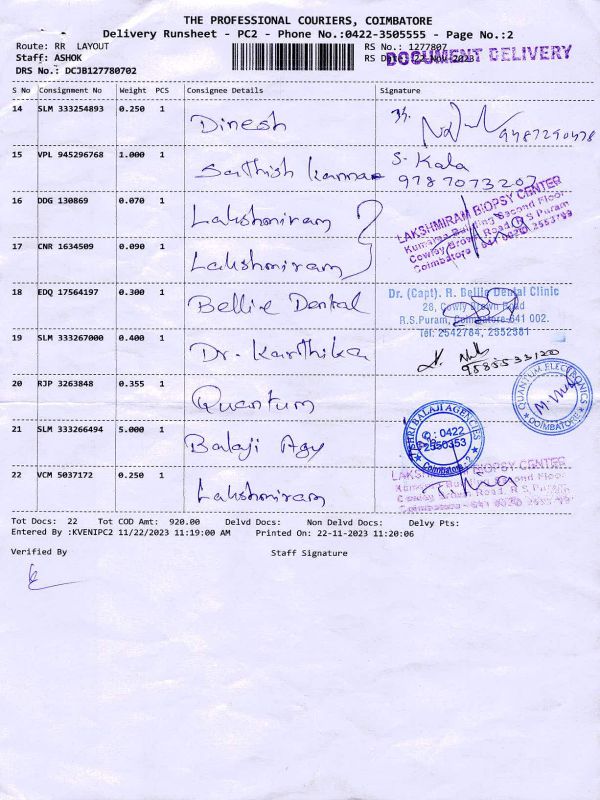 THE PROFESSIONAL COURIERS, COIMBATORE
Delivery Runsheet - PC2 - Phone No.:0422-3505555 - Page No.:2
Route: RR LAYOUT RS No.: 1277807
Staff: ASHOK RS Date: 22-Nov-2023
DOCUMENT DELIVERY
DRS No.: DCJB127780702
S No Consignment No Weight PCS Consignee Details Signature
14 SLM 333254893 0.250 1 Dinesh
15 VPL 945296768 1.000 1 Sathish kumar S. Kala
9787073207
16 DDG 130869 0.070 1 Lakshmiram
LAKSHMIRAM BIOPSY CENTER
Kumaran Building Second Floor
Cowley Brown Road, R S Puram
Coimbatore - 641 002
17 CNR 1634509 0.090 1 Lakshmiram
18 EDQ 17564197 0.300 1 Bellie Dental
Dr. (Capt). R. Bellie Dental Clinic
28, Cowly Brown Road
R.S.Puram, Coimbatore-641 002.
Tel: 2542784, 2552381
19 SLM 333267000 0.400 1 Dr. Karthika
20 RJP 3263848 0.355 1 Quantum
QUANTUM ELECTRONICS
COIMBATORE
21 SLM 333266494 5.000 1 Balaji Agy
SHRI BALAJI AGENCIES
✆: 0422
2550353
Coimbatore-2
22 VCM 5037172 0.250 1 Lakshmiram
LAKSHMIRAM BIOPSY CENTER
Kumaran Building Second Floor
Cowley Brown Road, R S Puram
Coimbatore - 641 002
Tot Docs: 22 Tot COD Amt: 920.00 Delvd Docs: Non Delvd Docs: Delvy Pts:
Entered By :KVENIPC2 11/22/2023 11:19:00 AM Printed On: 22-11-2023 11:20:06
Verified By Staff Signature